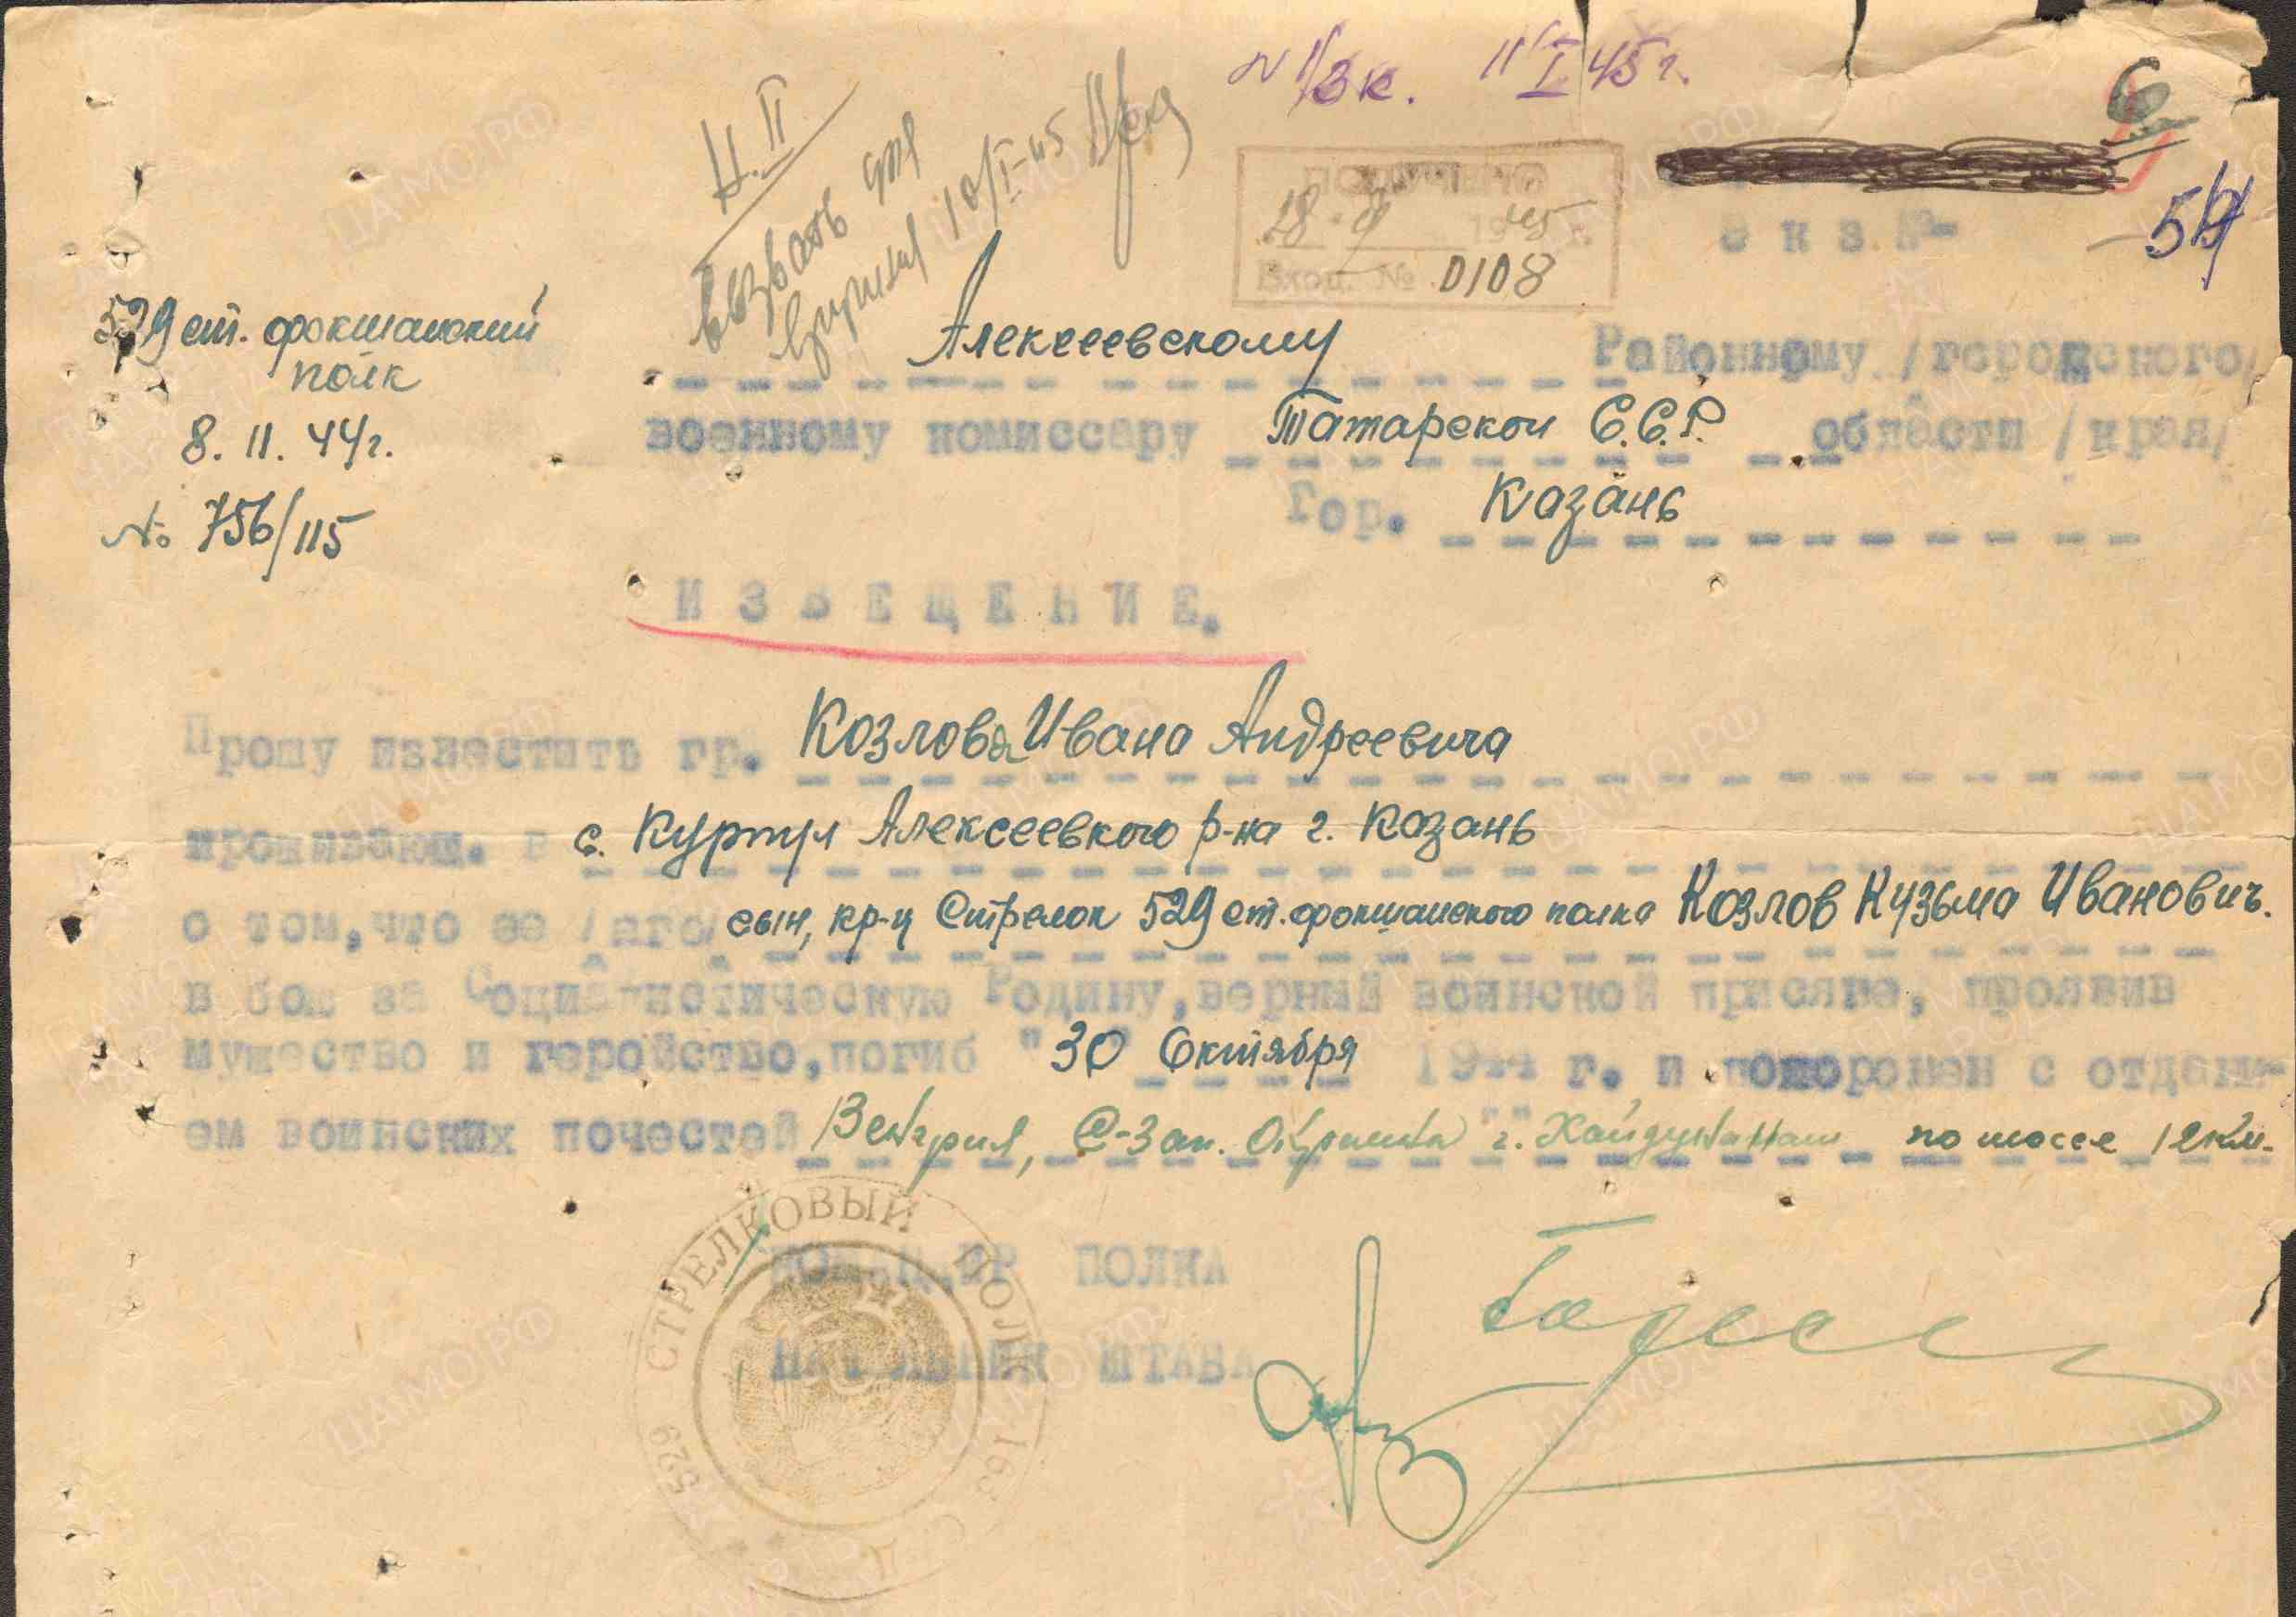 № 1/3к. 11/I 45 г.
Н. II
вызвать
10/I-45
ПОЛУЧЕНО
28. 1945 г.
Вход. № 0108
Экз. №
529 ст. фокшанский
полк
8. 11. 44 г.
№ 756/115
Алексеевскому Районному /городского/
военному комиссару Татарской С.С.Р. области /края/
Гор. Казань
ИЗВЕЩЕНИЕ.
Прошу известить гр. Козлова Ивана Андреевича
проживающ. в с. Алексеевкого р-на г. Казань
о том, что ее /его/ сын, кр-ц Стрелок 529 ст. фокшанского полка Козлов Кузьма Иванович.
в бою за Социалистическую Родину, верный воинской присяге, проявив
мужество и геройство, погиб "30" Октября 1944 г. и похоронен с отдани-
ем воинских почестей Венгрия, С-Зап. Окраина г. по шоссе 12 км.
КОМАНДИР ПОЛКА
НАЧАЛЬНИК ШТАБА
529 СТРЕЛКОВЫЙ ПОЛК 163 С Д
ЦАМО.РФ